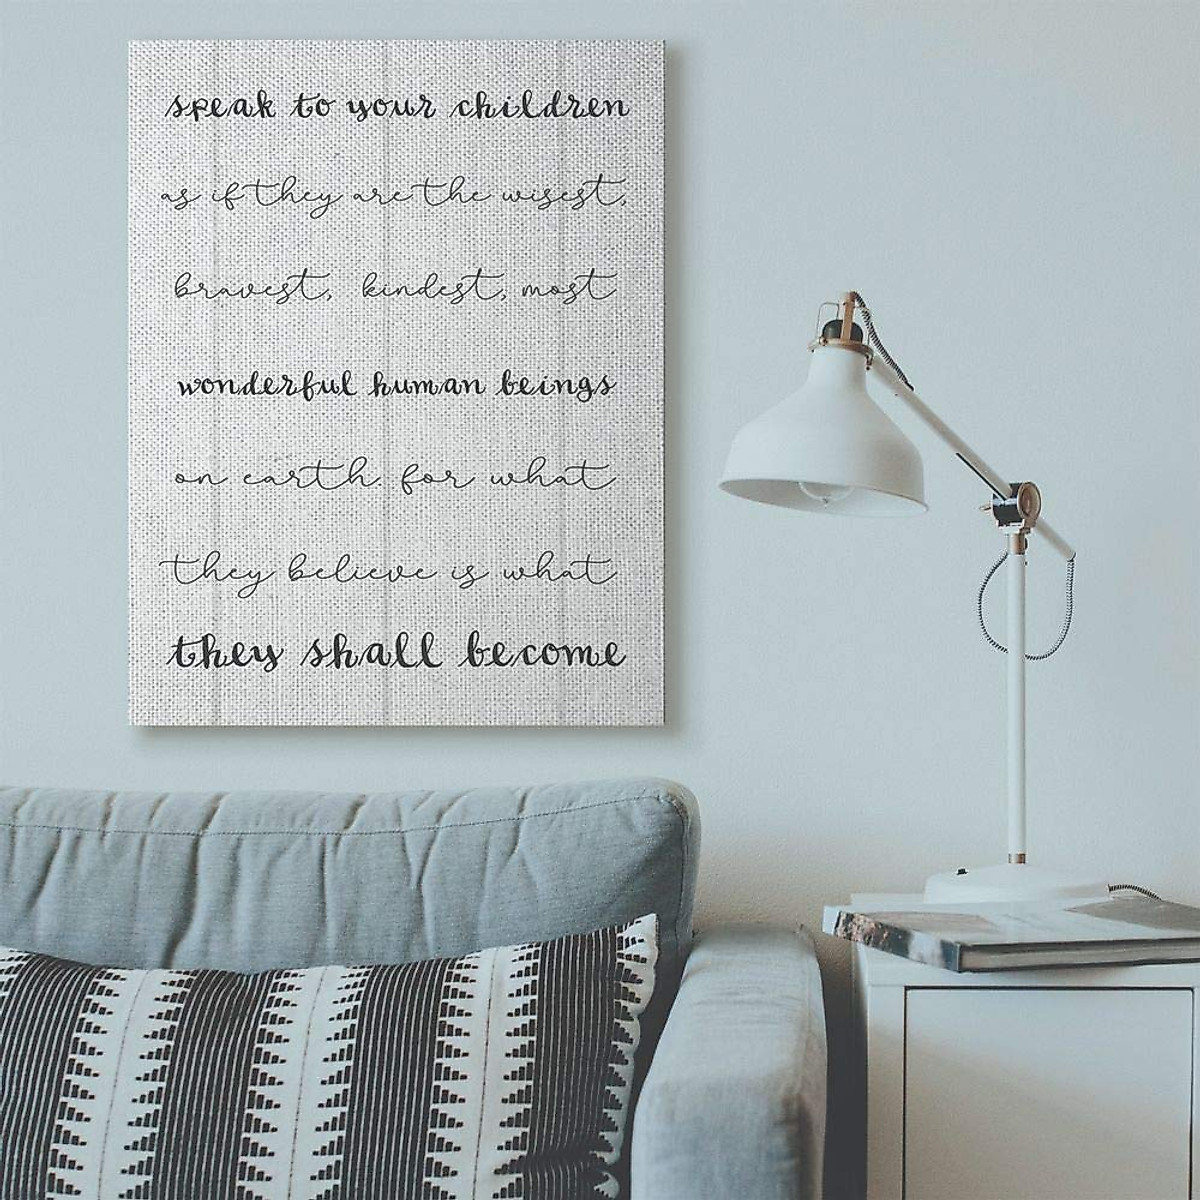 speak to your children
as if they are the wisest,
bravest, kindest, most
wonderful human beings
on earth for what
they believe is what
they shall become